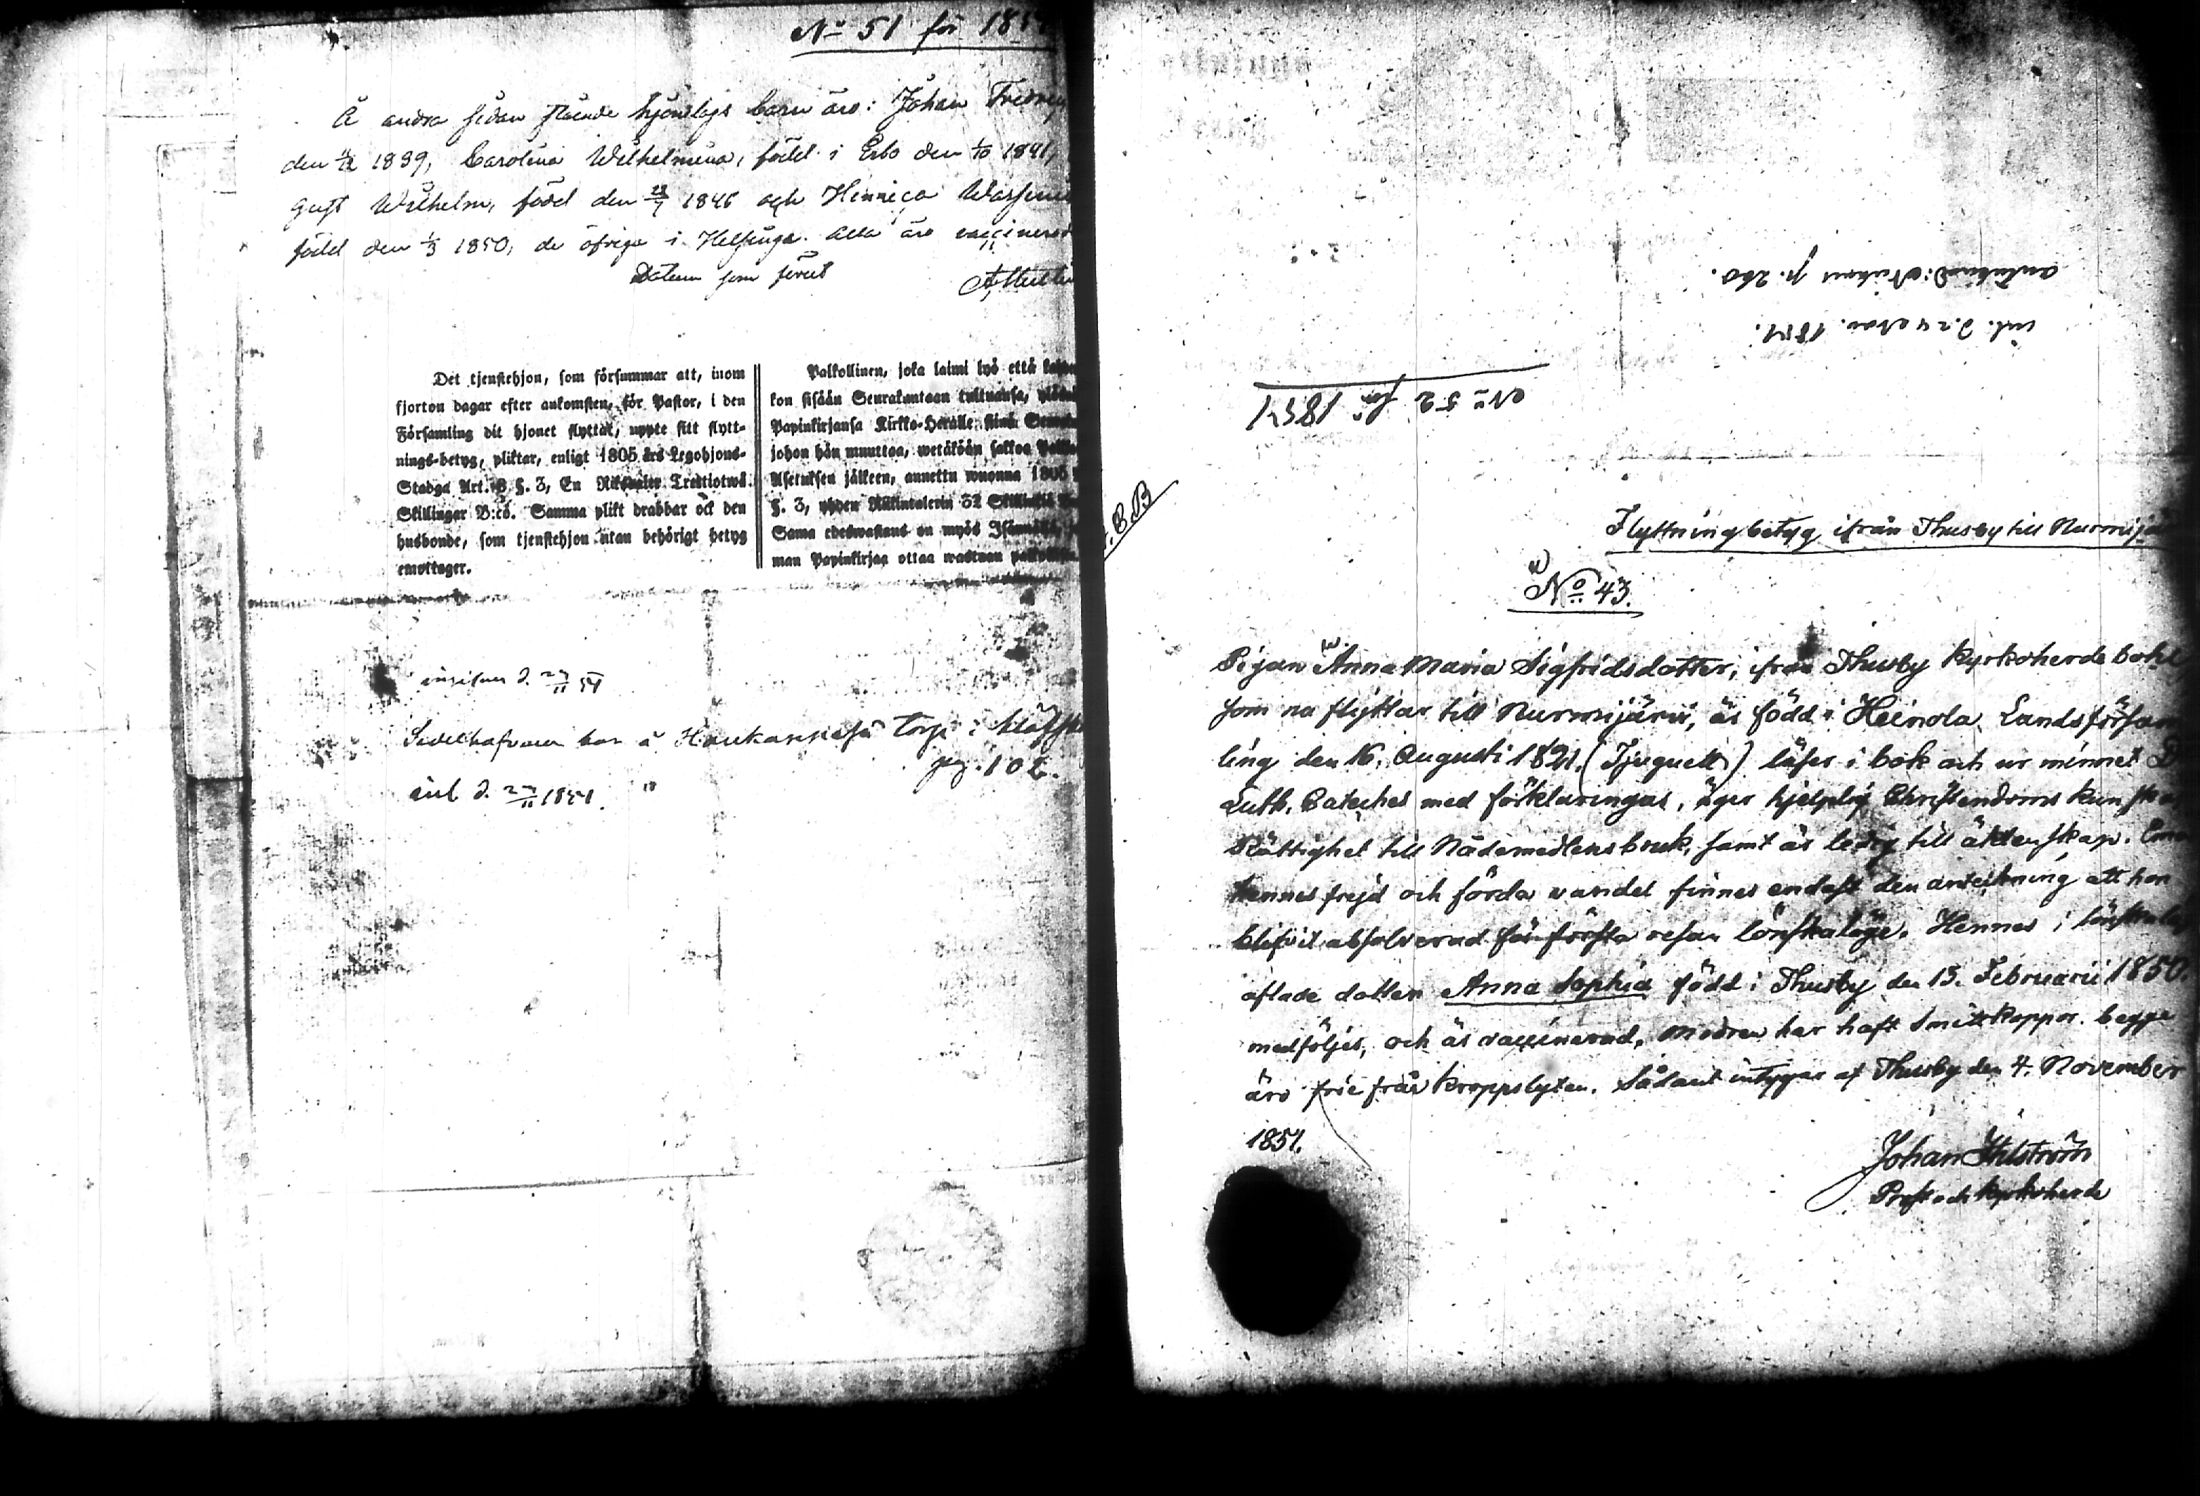 No 51 för 185
Å andra sidan stående hjonelags barn äro: Johan Fredric,
den 1839, Carolina Wilhelmina, född i Esbo den 1/10 1841,
gust Wilhelm, född den 28/7 1846 och Henrica
född den 1/3 1850, de öfriga i Helsinge. Alla äro vaccinerad
Datum som förut
Det tjenstehjon, som försummar att, inom
fjorton dagar efter ankomsten, för Pastor, i den
Församling dit hjonet flyttat, uppte sitt flytt-
nings-betyg, pliktar, enligt 1805 års Legohjons-
Stadga Art. 8 §. 3, En Riksdaler Trettiotwå
Skillingar B:co. Samma plikt drabbar ock den
husbonde, som tjenstehjon utan behörigt betyg
emottager.
Palkollinen, joka laimi lyö että
kon sisään Seurakuntaan tultuansa,
Papinkirjansa Kirkko-Herralle siinä
johon hän muuttaa, wetäköön sakkoa
Asetuksen jälkeen, annettu wuonna 1805
§. 3, yhden Riikintalerin 32 Skillinkiä
Sama edeswastaus on myös
man Papinkirjaa ottaa wastaan
d. 27/11 51
Sedelhafvaren bor å torp i
pag. 102.
d. 27/11 1851.
p. 260.
d. 24 Nov. 1851.
No 52 för 1851
Flyttningbetyg ifrån Thusby till Nurmijär
No 43.
Pigan Anna Maria Sigfridsdotter, ifrån Thusby kyrkoherde bohl
som nu flyttar till Nurmijärvi, är född i Heinola Landsförsam
ling den 16. Augusti 1821. (Tjuguett) läser i bok och ur minnet D
Luth. Cateches med förklaringar, äger hjelplig Christendoms kunska
Rättighet till Nådemedlens bruk, samt är ledig till äktenskap. Om
hennes frejd och förda vandel finnes endast den anteckning att hon
blifvit absolverad för första resan lönskaläge. Hennes i lönskalä
aflade dotter Anna Sophia född i Thusby den 13. Februarii 1850.
medföljer, och är vaccinerad, Modren har haft Smittkoppor. begge
äro frie från kroppslyten. Sådant intygar af Thusby den 4. November
1851.
Johan Ahlström
Prost och kyrkoherde